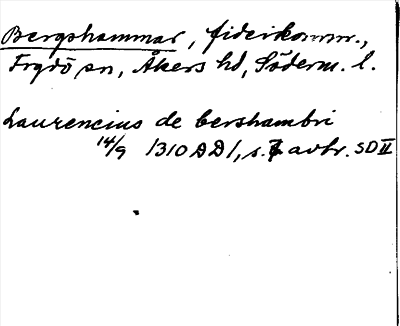 Bergshammar, fideikomm.,
Frgdö sn, Åkers hd, Söderm. l.
Laurencius de bershambri
14/9 1310 DD1, s. 7 avbr. SD II